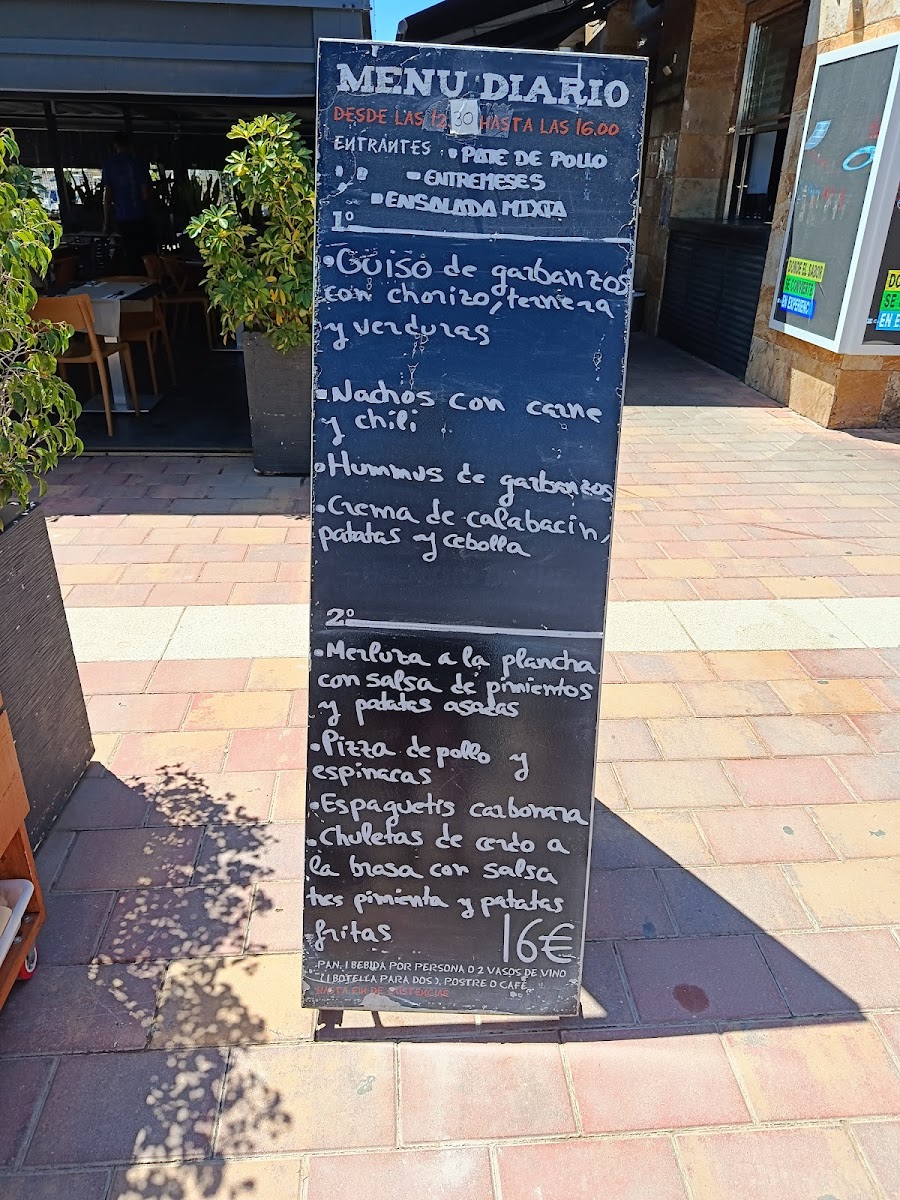 MENU DIARIO
DESDE LAS 12.30 HASTA LAS 16.00
ENTRANTES • PATE DE POLLO
• ENTREMESES
• ENSALADA MIXTA
1º
• Guiso de garbanzos
con chorizo, ternera
y verduras
• Nachos con carne
y chili
• Hummus de garbanzos
• Crema de calabacin,
patatas y cebolla
2º
• Merluza a la plancha
con salsa de pimientos
y patatas asadas
• Pizza de pollo y
espinacas
• Espaguetis carbonara
• Chuletas de cerdo a
la brasa con salsa
tres pimienta y patatas
fritas
16€
PAN, 1 BEBIDA POR PERSONA O 2 VASOS DE VINO
(1 BOTELLA PARA DOS), POSTRE O CAFÉ
HASTA FIN DE EXISTENCIAS
DONDE EL SABOR
SE CONVIERTE
EN EXPERIENCI